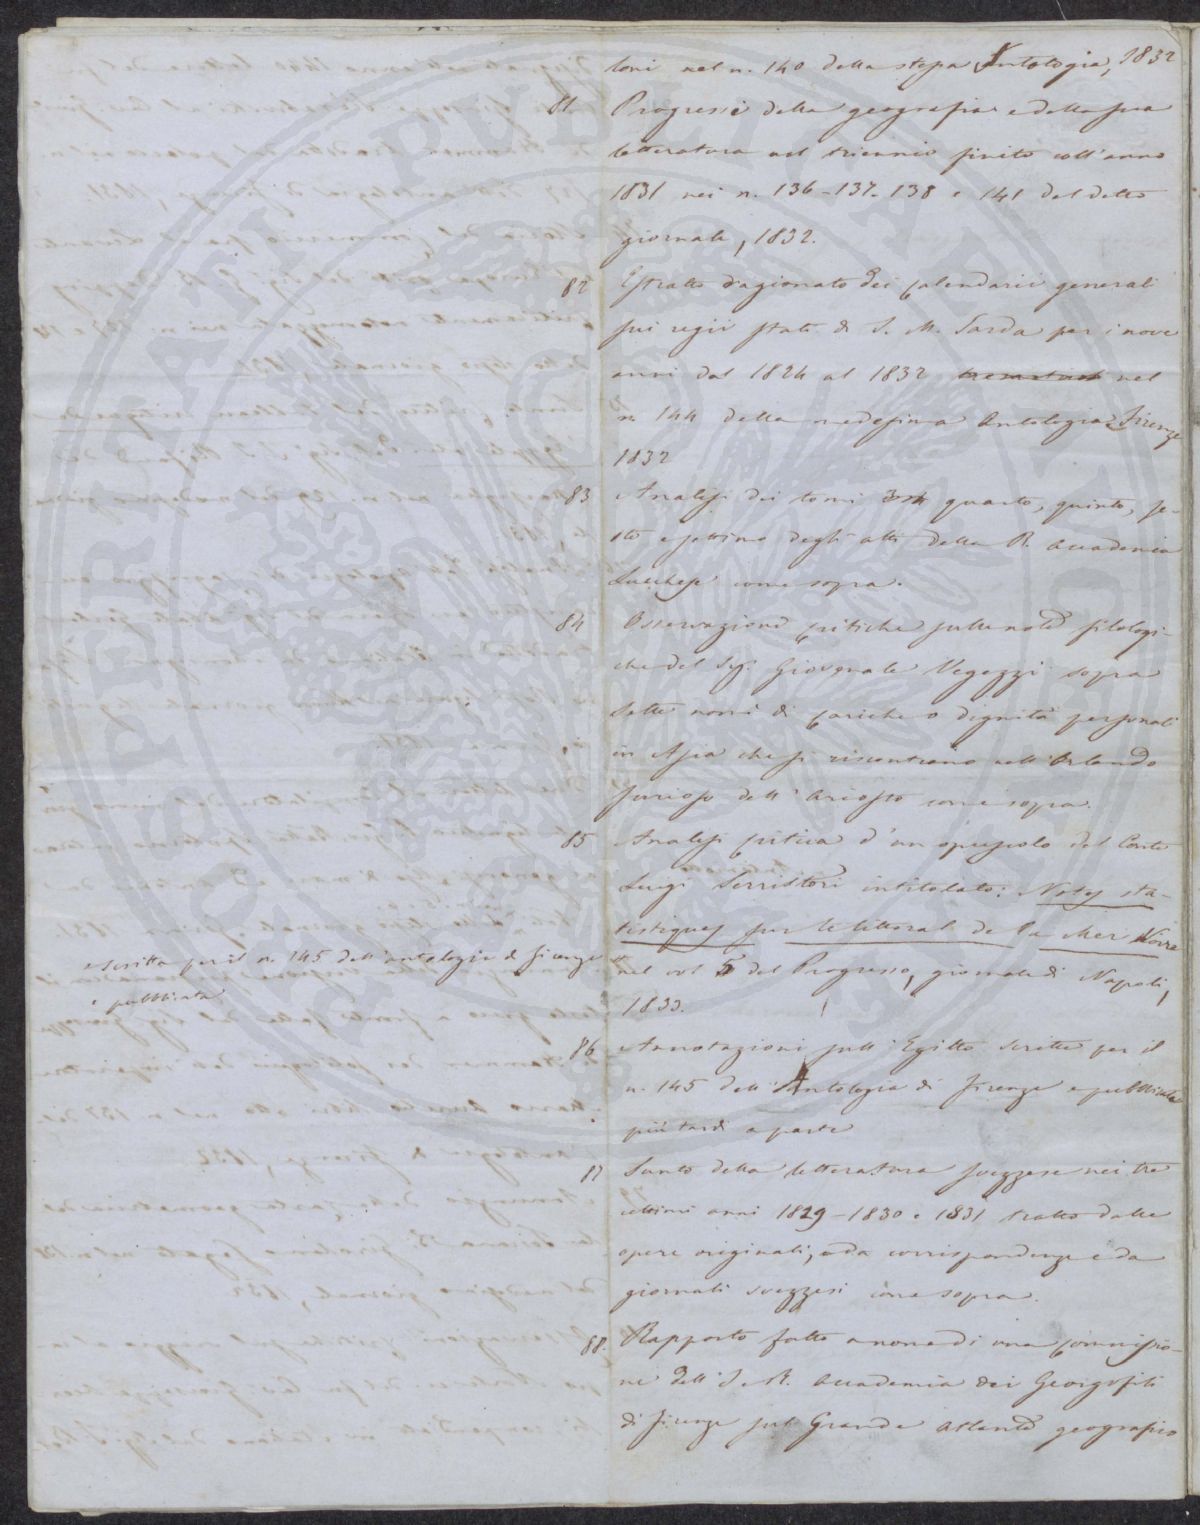 loni nel n. 140 della stessa Antologia, 1832
81 Progressi della geografia e della sua
letteratura nel triennio finito coll'anno
1831 nei n. 136-137-138 e 141 del detto
giornale, 1832.
82 Estratto ragionato dei calendarii generali
sui regii stati di S. M. Sarda per i nove
anni dal 1824 al 1832 nel
n. 144 della medesima Antologia, Firenze
1832
83 Analisi dei tomi quarto, quinto, se-
sto e settimo degli atti della R. Accademia
Lucchese come sopra.
84 Osservazioni critiche sulle note filologi-
che del Sig. Giovenale Vegezzi sopra
sette nomi di cariche o dignità personali
in Asia che si riscontrano nell'Orlando
furioso dell'Ariosto come sopra.
85 Analisi critica d'un opuscolo del Conte
Luigi Serristori intitolato: Notes sta-
tistiques sur le littoral de la Mer Noire
nel vol 5 del Progresso, giornale di Napoli,
1833.
e scritta per il n. 145 dell'antologia di firenze
e pubblicata
86 Annotazioni sull'Egitto scritte per il
n. 145 dell'Antologia di Firenze e pubblicate
più tardi a parte
87 Sunto della letteratura svezzese nei tre
ultimi anni 1829-1830 e 1831 tratto dalle
opere originali, e da corrispondenze e da
giornali svezzesi come sopra.
88. Rapporto fatto a nome di una commissio-
ne dell'I. e R. Accademia dei Georgofili
di firenze sul Grande Atlante geografico